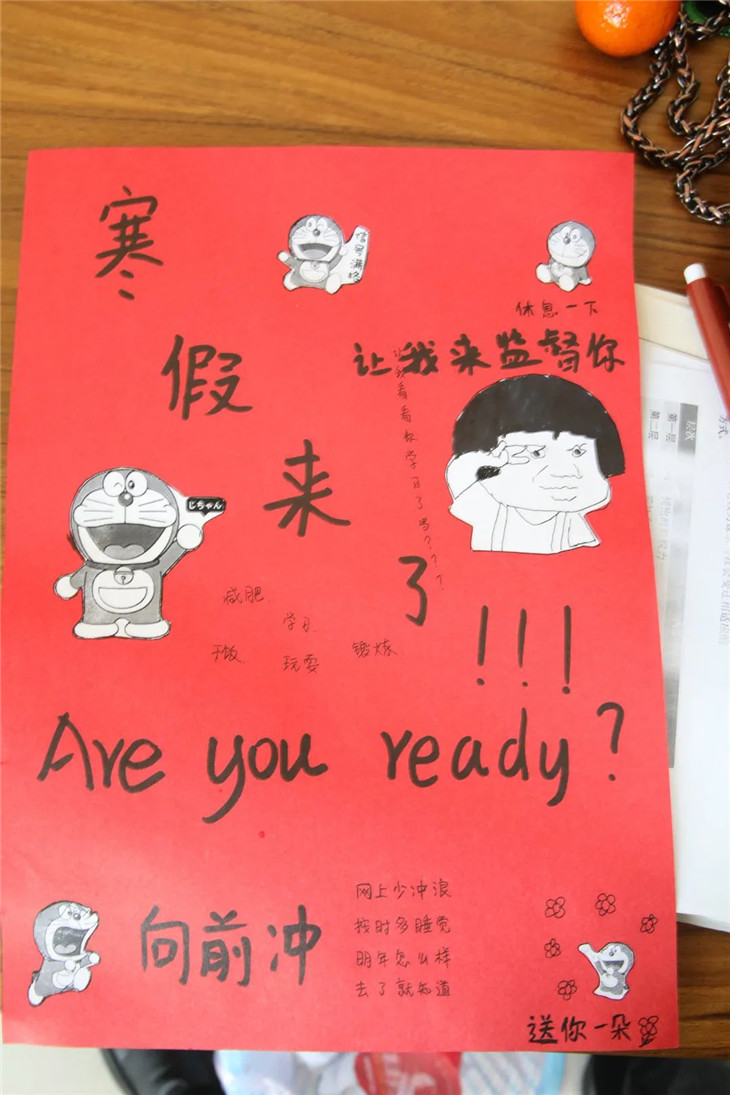 寒
假
来
了!!!
信号满格
休息一下
让我来监督你
让我看看你学习了吗????
じちゃん
减肥
学习
干饭
玩耍
锻炼
Are you ready?
向前冲
网上少冲浪
按时多睡觉
明年怎么样
去了就知道
送你一朵
方式。
层次
第一层
第二层